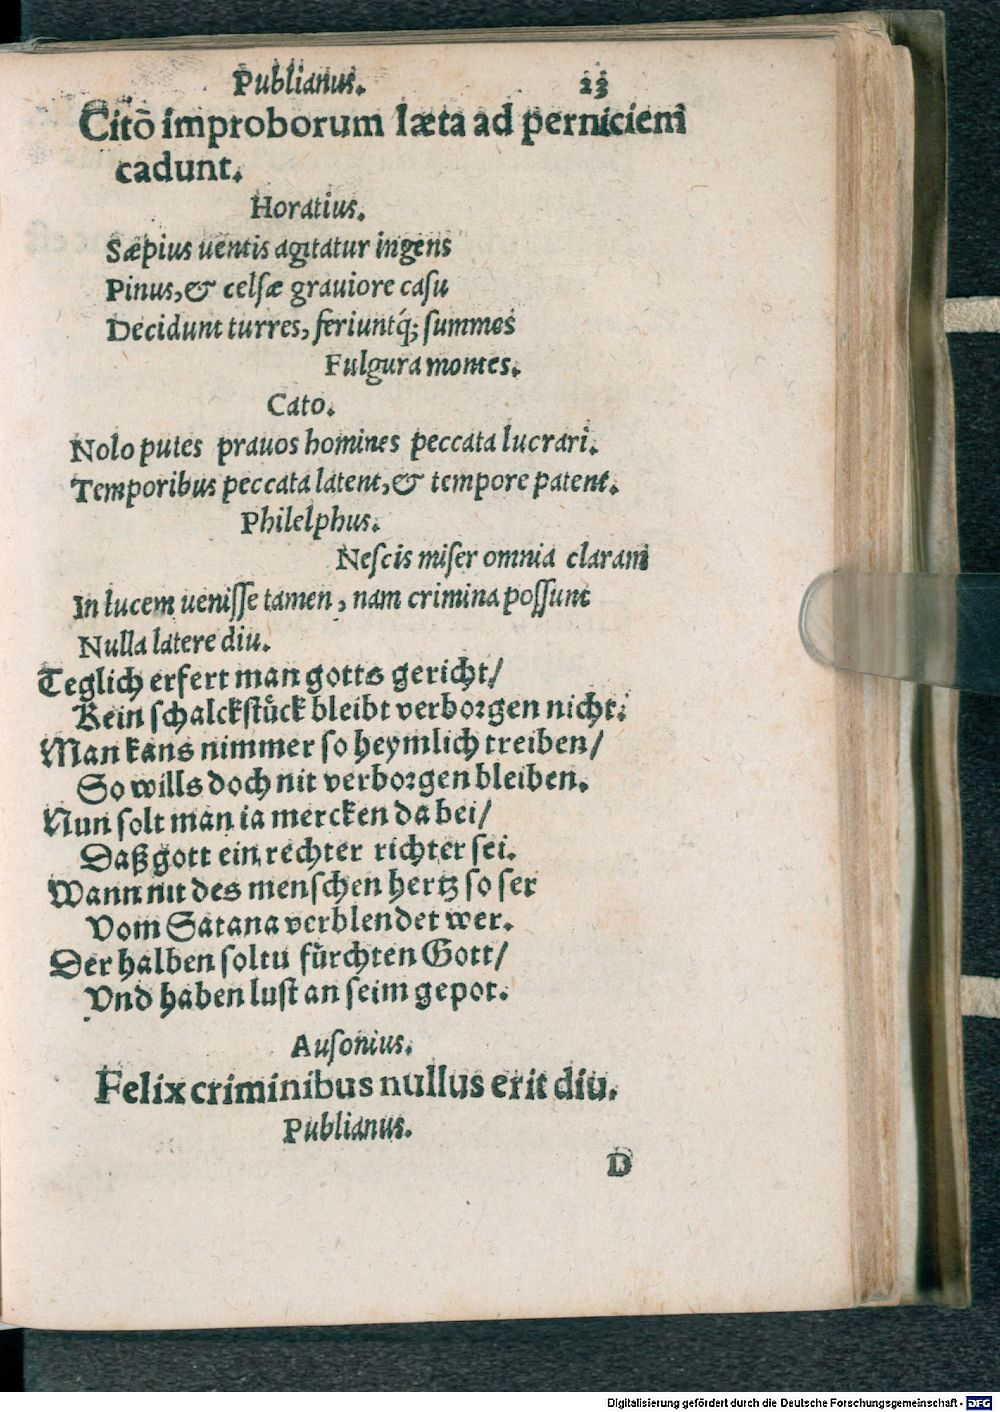 Publianus. 23
Citò improborum læta ad perniciem
cadunt.
Horatius.
Sæpius uentis agitatur ingens
Pinus, & celsæ grauiore casu
Decidunt turres, feriuntq́; summos
Fulgura montes.
Cato.
Nolo putes prauos homines peccata lucrari.
Temporibus peccata latent, & tempore patent.
Philelphus.
Nescis miser omnia claram
In lucem uenisse tamen, nam crimina possunt
Nulla latere diu.
Teglich erfert man gotts gericht/
Kein schalckstuͤck bleibt verborgen nicht.
Man kans nimmer so heymlich treiben/
So wills doch nit verborgen bleiben.
Nun solt man ia mercken da bei/
Daß gott ein rechter richter sei.
Wann nit des menschen hertz so ser
Vom Satana verblendet wer.
Der halben soltu fuͤrchten Gott/
Vnd haben lust an seim gepot.
Ausonius.
Felix criminibus nullus erit diu.
Publianus.
D
Digitalisierung gefördert durch die Deutsche Forschungsgemeinschaft - DFG